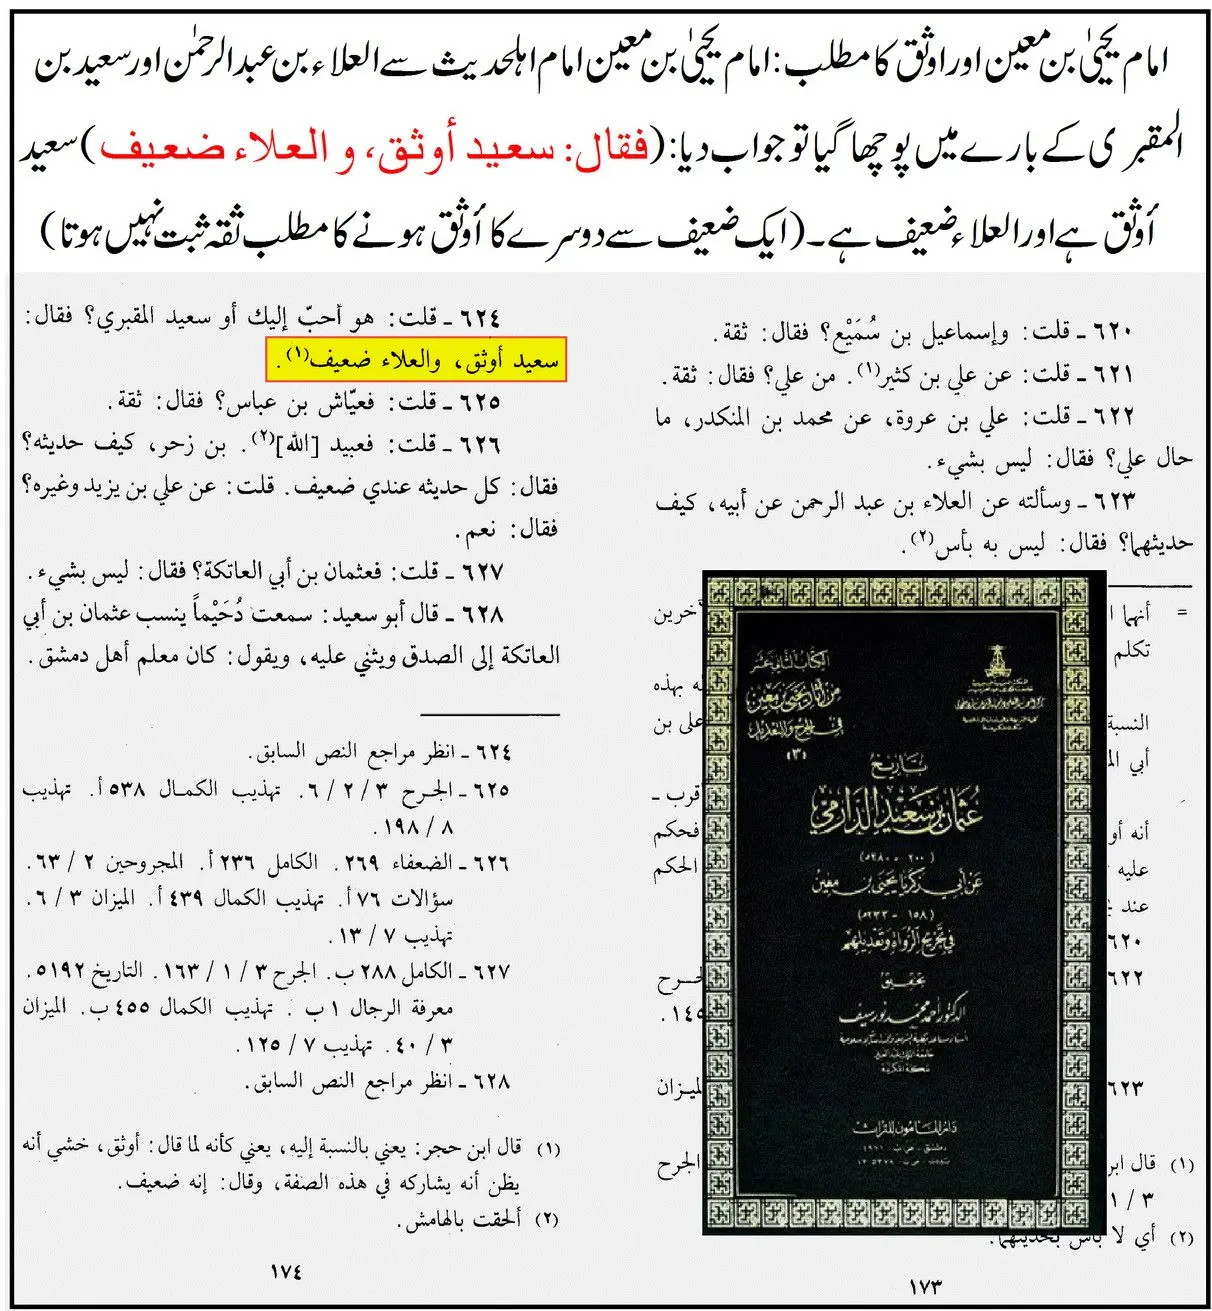 امام یحییٰ بن معین اور اوثق کا مطلب: امام یحییٰ بن معین امام اہلحدیث سے العلاء بن عبدالرحمٰن اور سعید بن
المقبری کے بارے میں پوچھا گیا تو جواب دیا:(فقال: سعيد أوثق، و العلاء ضعيف)سعید
أوثق ہے اور العلاء ضعیف ہے۔(ایک ضعیف سے دوسرے کا أوثق ہونے کا مطلب ثقہ ثبت نہیں ہوتا)
٦٢٠ ـ قلت: وإسماعيل بن سُمَيْع؟ فقال: ثقة.
٦٢١ ـ قلت: عن علي بن كثير(١). من علي؟ فقال: ثقة.
٦٢٢ ـ قلت: علي بن عروة، عن محمد بن المنكدر، ما
حال علي؟ فقال: ليس بشيء.
٦٢٣ ـ وسألته عن العلاء بن عبد الرحمن عن أبيه، كيف
حديثهما؟ فقال: ليس به بأس(٢).
= أنهما
آخرين
تكلم
له بهذه
النسبة
على بن
أبي
قرب ـ
أنه أو
فحكم
عليه
الحكم
عند
٦٢٠
٦٢٢
٤٥.
٦٢٣
لميزان
(١) قال ابن
الجرح
٣ / ١
(٢) أي لا بأس بحديثهما.
١٧٣
الكتاب الثاني عشر
من آثار يحيى بن معين
في الجرح والتعديل
(٣)
تاريخ
عثمان بن سعيد الدارمي
(٢٠٠ - ٢٨٠هـ)
عن أبي زكريا يحيى بن معين
(١٥٨ - ٢٣٣هـ)
في تجريح الرواة وتعديلهم
تحقيق
الدكتور أحمد محمد نور سيف
مكة المكرمة
دار المأمون للتراث
٦٢٤ ـ قلت: هو أحبّ إليك أو سعيد المقبري؟ فقال:
سعيد أوثق، والعلاء ضعيف(١).
٦٢٥ ـ قلت: فعيّاش بن عباس؟ فقال: ثقة.
٦٢٦ ـ قلت: فعبيد [الله](٢). بن زحر، كيف حديثه؟
فقال: كل حديثه عندي ضعيف. قلت: عن علي بن يزيد وغيره؟
فقال: نعم.
٦٢٧ ـ قلت: فعثمان بن أبي العاتكة؟ فقال: ليس بشيء.
٦٢٨ ـ قال أبو سعيد: سمعت دُحَيْماً ينسب عثمان بن أبي
العاتكة إلى الصدق ويثني عليه، ويقول: كان معلم أهل دمشق.
٦٢٤ ـ انظر مراجع النص السابق.
٦٢٥ ـ الجرح ٣ / ٢ / ٦. تهذيب الكمال ٥٣٨ أ. تهذيب
٨ / ١٩٨.
٦٢٦ ـ الضعفاء ٢٦٩. الكامل ٢٣٦ أ. المجروحين ٢ / ٦٣.
سؤالات ٧٦ أ. تهذيب الكمال ٤٣٩ أ. الميزان ٣ / ٦.
تهذيب ٧ / ١٣.
٦٢٧ ـ الكامل ٢٨٨ ب. الجرح ٣ / ١ / ١٦٣. التاريخ ٥١٩٢.
معرفة الرجال ١ ب . تهذيب الكمال ٤٥٥ ب. الميزان
٣ / ٤٠. تهذيب ٧ / ١٢٥.
٦٢٨ ـ انظر مراجع النص السابق.
(١) قال ابن حجر: يعني بالنسبة إليه، يعني كأنه لما قال: أوثق، خشي أنه
يظن أنه يشاركه في هذه الصفة، وقال: إنه ضعيف.
(٢) ألحقت بالهامش.
١٧٤